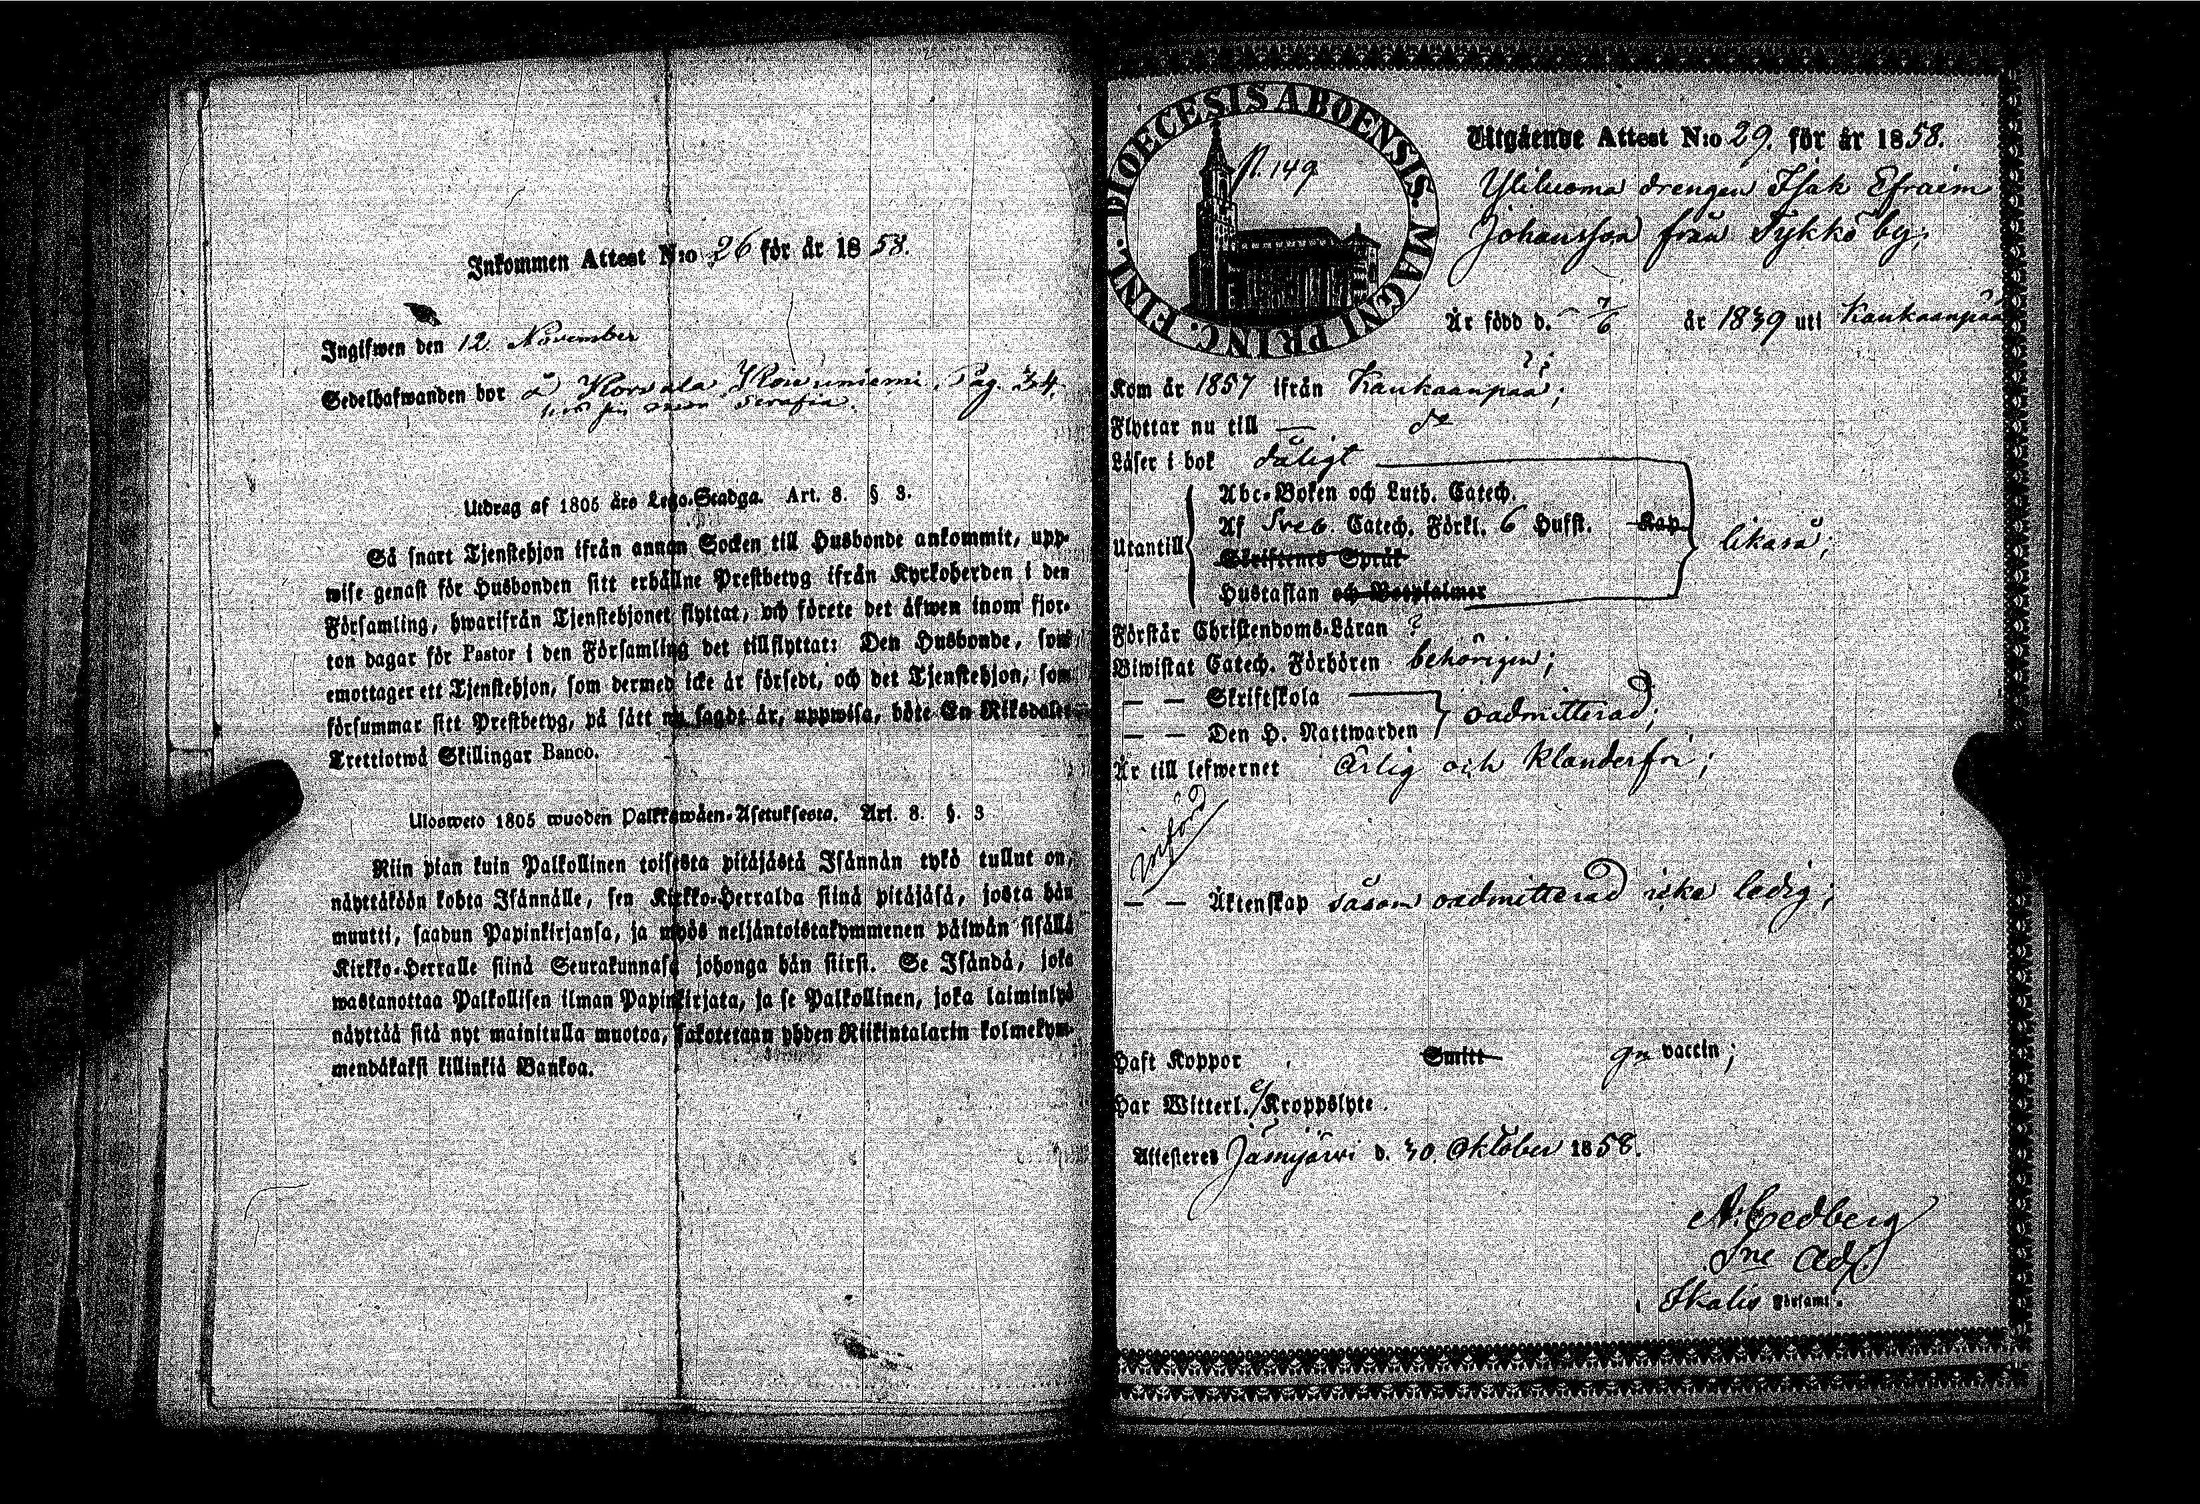 Inkommen Attest N:o 26 för år 1858.
Ingifwen den 12. November
Sedelhafwanden bor å Korvala Pag. 34.
Serafia.
Utdrag af 1805 års Lego-Stadga. Art. 8. § 3.
Så snart Tjenstehjon ifrån annan Socken till Husbonde ankommit, upp-
wise genast för Husbonden sitt erhållne Prestbetyg ifrån Kyrkoherden i den
Församling, hwarifrån Tjenstehjonet flyttat, och förete det äfwen inom fjor-
ton dagar för Pastor i den Församling det tillflyttat: Den Husbonde, som
emottager ett Tjenstehjon, som dermed icke är försedt, och det Tjenstehjon, som
försummar sitt Prestbetyg, på sätt nu sagdt är, uppwisa, böte En Riksdaler
Trettiotwå Skillingar Banco.
Ulosweto 1805 wuoden Palkkawäen-Asetuksesta. Art. 8. §. 3
Niin pian kuin Palkollinen toisesta pitäjästä Isännän tykö tullut on,
näyttäköön kohta Isännälle, sen Kirkko-Herralda siinä pitäjäsä, josta hän
muutti, saadun Papinkirjansa, ja myös neljäntoistakymmenen päiwän sisällä
Kirkko-Herralle siinä Seurakunnasa johonga hän siirsi. Se Isändä, joka
wastanottaa Palkollisen ilman Papinkirjata, ja se Palkollinen, joka laiminlyö
näyttää sitä nyt mainitulla muotoa, sakotetaan yhden Riikintalarin kolmekym-
mendäkaksi killinkiä Bankoa.
DIOECESIS ABOENSIS. MAGNI PRINC. FINL.
N. 149
Utgående Attest N:o 29. för år 1858.
Yliluoma drengen Isak Efraim
Johansson från Tykkö by,
Är född d. 7/6 år 1839 uti Kankaanpää
Kom år 1857 ifrån Kankaanpää;
Flyttar nu till — do
Läser i bok dåligt
Abc-Boken och Luth. Catech.
Utantill Af Sveb. Catech. Förkl. 6 Hufst. Kap. likaså;
Skriftenes Språk
Hustaflan och Botpsalmer
Förstår Christendoms-Läran ?
Biwistat Catech. Förhören behörigen;
— — Skriftskola
— — Den H. Nattwarden oadmitterad;
Är till lefwernet ärlig och klanderfri;
införd
— — Äktenskap såsom oadmitterad icke ledig;
Haft Koppor Smitt gn vaccin;
Har Witterl. ej Kroppslyte.
Attesteres Jämijärwi d. 30. Oktober 1858.
A. Cedberg
Sne Adj.
i Ikalis Församl.